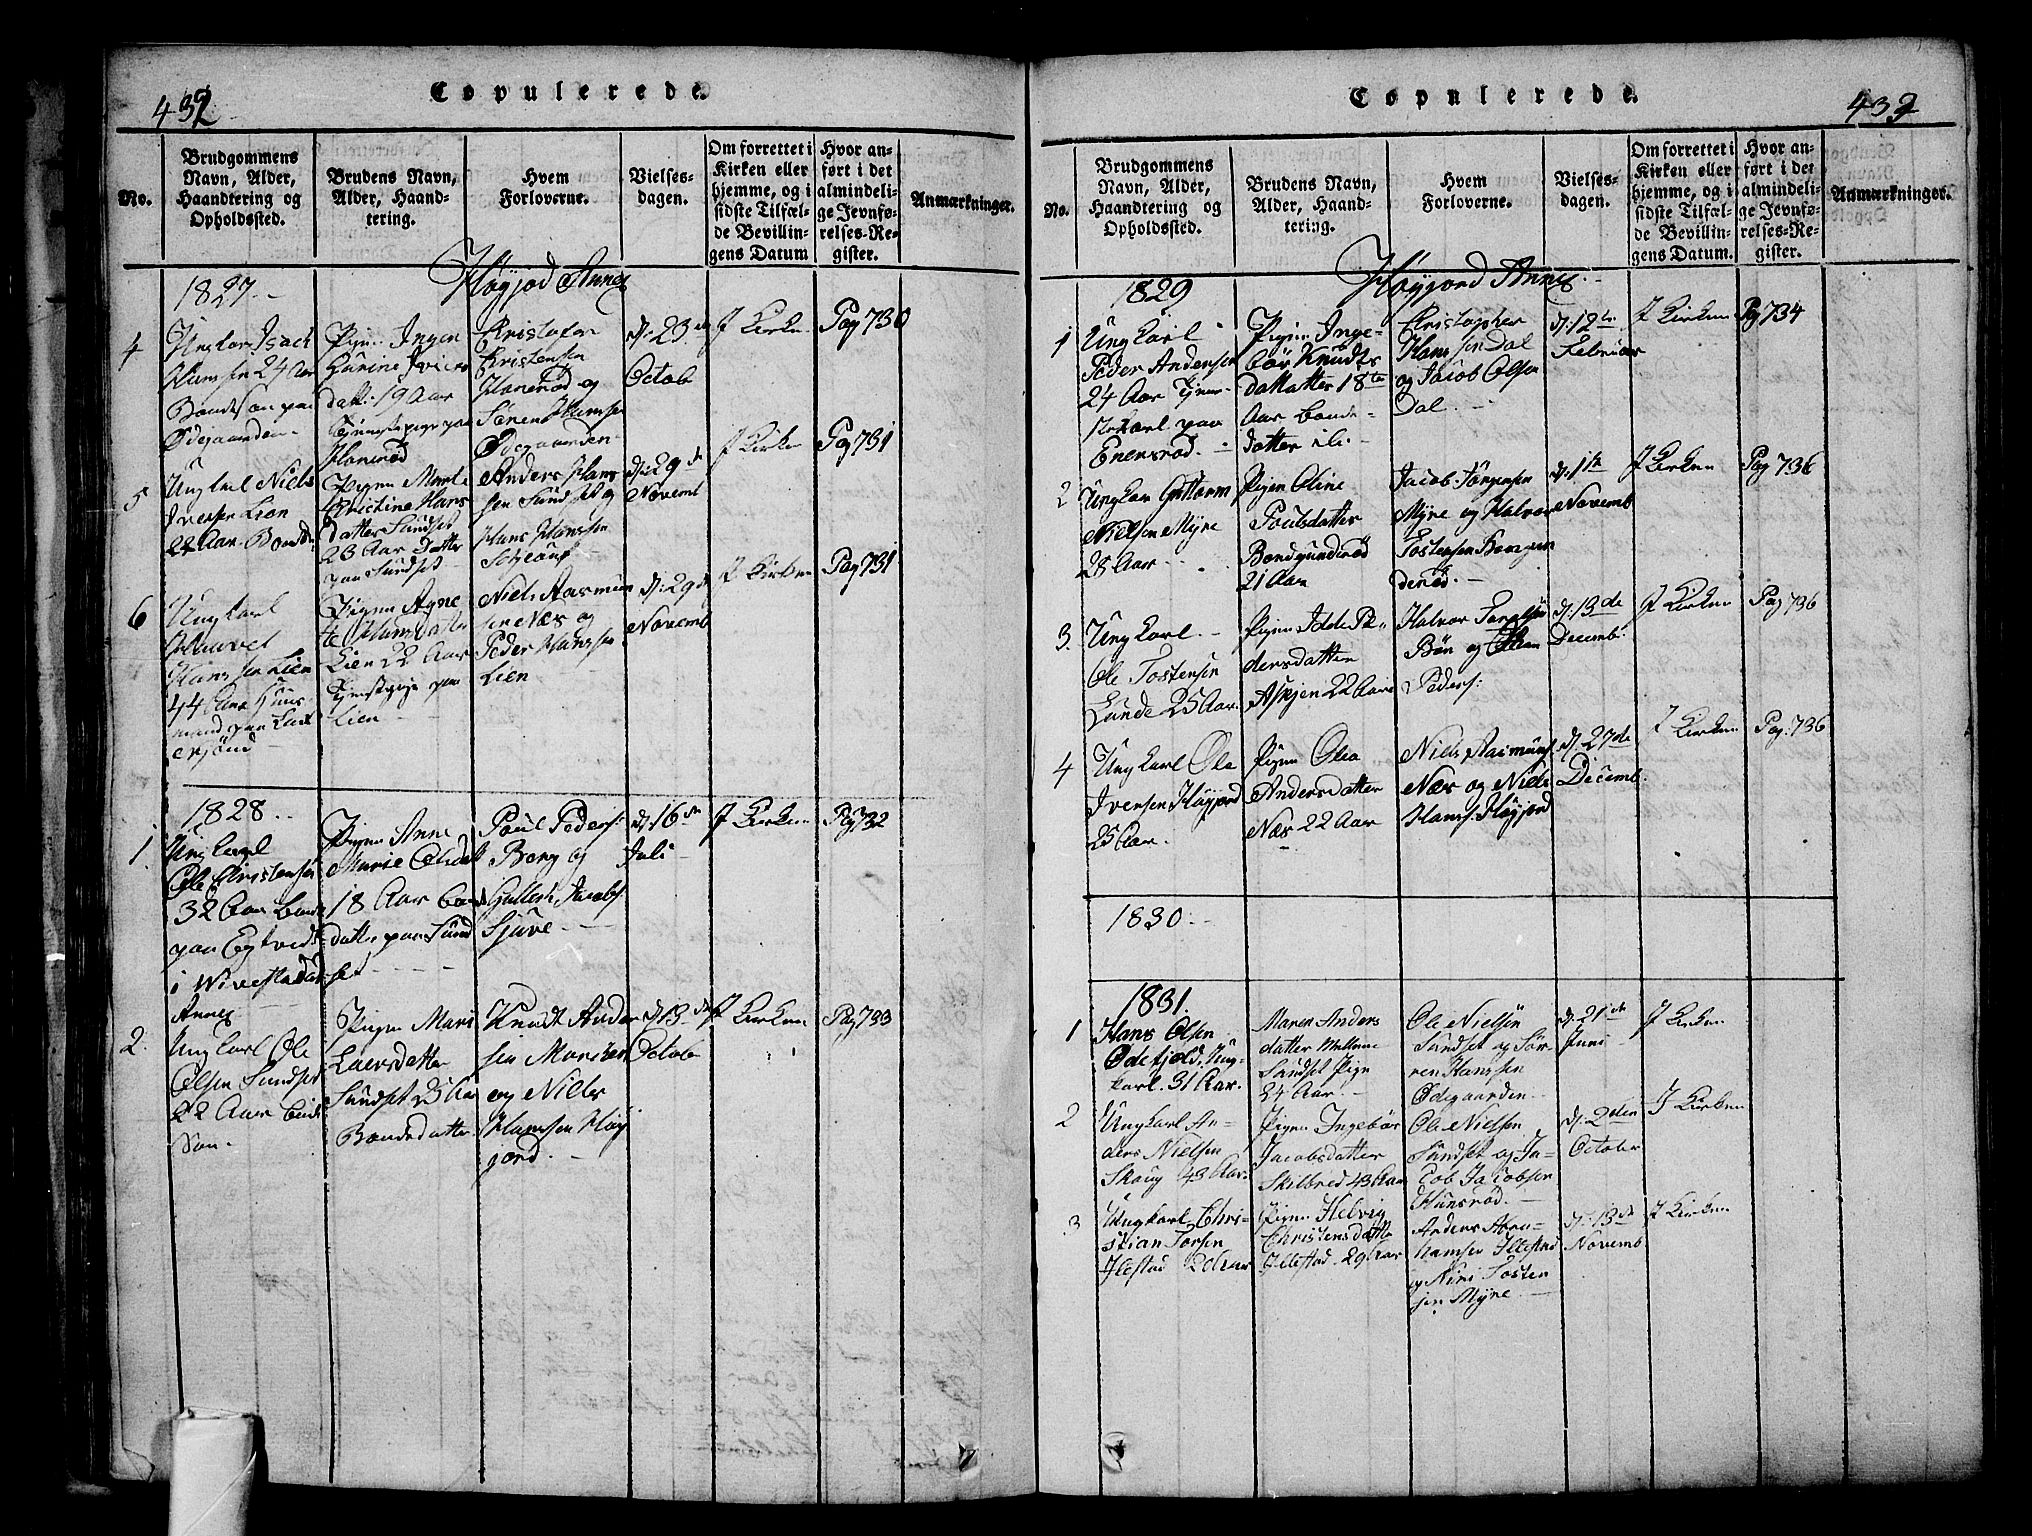 432
Copulerede.
No.
Brudgommens
Navn, Alder,
Haandtering og
Opholdssted.
Brudens Navn,
Alder, Haand-
tering.
Hvem
Forloverne.
Vielses-
dagen.
Om forrettet i
Kirken eller
hjemme, og i
sidste Tilfæl-
de Bevillin-
gens Datum
Hvor an-
ført i det
almindeli-
ge Jevnfø-
relses-Re-
gister.
Anmærkninger.
1827.
Høyjod Annex
4
Isach
Hansen 24 Aar
Bondesøn paa
Ødegaarden
Pigen Inger
Gurine Ivers
datt: 19 Aar
Hanerød
Cristofer
Cristensen
Hanerød og
Søren Hansen
Ødegaarden
d: 23
Octob
I Kirken
Pag 730
5
Ungkarl Niels
Iversen Lien
22 Aar. Bonde
Pigen Marte
Cristine Hans
datter Sundset
23 Aar Datter
paa Sundset
Anders Hans
sen Sundset og
Hans Hanssen
d: 29
Novemb
I Kirken
Pag 731
6
Ungkarl
Hansen Lien
44 Aar Huus
mand paa
Pigen Agne
te Hansdatter
Lien 22 Aar
Tjenestepige paa
Lien
Niels Rasmus
sen Næs og
Peder Hanssen
Lien
d: 29
Novemb
I Kirken
Pag 731
1828.
1
Ungkarl
Ole Christensen
32 Aar Bonde
paa
i Wivestad
Annex
Pigen Anne
Marie Olsdat
18 Aar Bonde
datter paa Sund
set
Poul Peders:
Berg og
Gullerk Jacobs
Sjuve
d: 16
Juli
I Kirken
Pag 732
2.
Ungkarl Ole
Olsen Sundset
22 Aar Bonde
Søn.
Pigen Mari
Laersdatter
Sundset 25 Aa
Bondedatter
Knudt Ander
sen
og Niels
Hansen Høy
jord
d: 13
Octob
I Kirken
Pag 733
439
Copulerede.
No.
Brudgommens
Navn, Alder,
Haandtering og
Opholdssted.
Brudens Navn,
Alder, Haand-
tering.
Hvem
Forloverne.
Vielses-
dagen.
Om forrettet i
Kirken eller
hjemme, og i
sidste Tilfæl-
de Bevillin-
gens Datum.
Hvor an-
ført i det
almindeli-
ge Jevnfø-
relses-Re-
gister.
Anmærkninger.
1829
Høyjord Annex
1
Ungkarl
Peder Andersen
24 Aar Tjene-
stekarl paa
Enersrød.
Pigen Inge-
bør Knudts
datter 18
Aar Bonde-
datter
Cristopher
Hanssen Dal
og Jacob Olsen
Dal.
d: 12te
Februar
I Kirken
Pag 734
2
Ungkar Guttorm
Nielsen Myre
28 Aar
Pigen Oline
Poulsdatter
21 Aar
Jacob Jørgensen
Myre og Halvor
Tostensen
derød.
d: 1ste
Novemb
I Kirken
Pag 736
3.
Ungkarl.
Ole Tostensen
Lunde 25 Aar.
Pigen Idde Pe-
dersdatter
Askjen 22 Aar
Halvor
Bøn og
Peders:
d: 13de
Decemb:
I Kirken
Pag 736
4
Ungkarl Ole
Iversen Høyjord
25 Aar.
Pigen Olea
Andersdatter
Næs 22 Aar
Niels Rasmuns
Næs og Niels
Hans: Høyjord
d: 27de
Decemb.
I Kirken
Pag: 736
1830.
1831.
1
Hans Olsen
Ødefjeld, Ung-
karl. 31 Aar.
Maren Anders
datter Mellom
Sundset Pige
24 Aar.
Ole Nielsen
Sundset og Sør-
ren Hanssen
Ødegaarden
d: 21de
Juni
I Kirken
2
Ungkarl An-
ders Nielsen
Skoug 43 Aar.
Pigen Ingebør
Jacobsdatter
Skilbred 43 Aar
Ole Nielsen
Sundset og Ja-
cob Jacobsen
Hunsrød.
d: 2den
October
I Kirken
3
Ungkarl Chri-
stian Torsen
Illestad
Pigen Helvig
Christensdatte
Illestad. 29 Aar
Anders Abra-
hamsen Illestad
og Toste
sen Myre.
d: 13de
Novemb
I Kirken